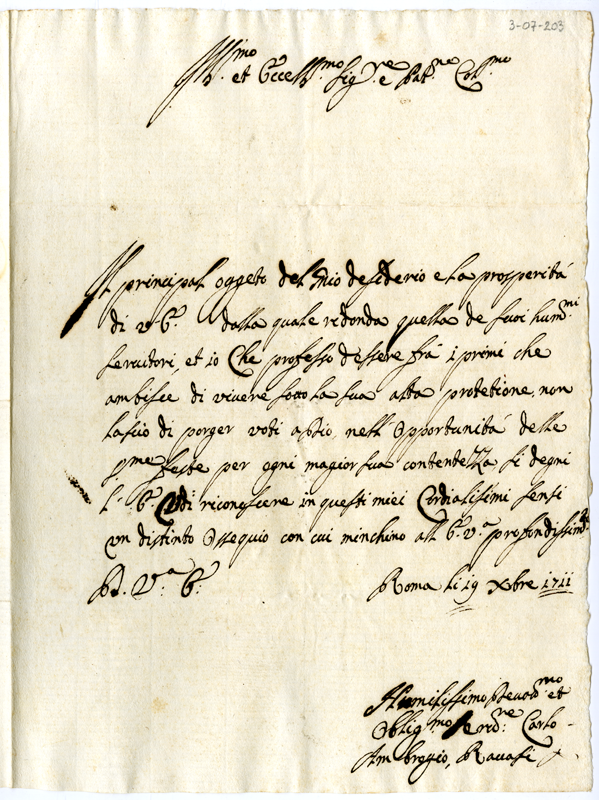 3-07-203
Ill.mo et Eccell.mo Sig.re e Pat.ne Col.mo
Il principal oggeto del mio desiderio e la prosperitá
di v. E. dalla quale ridonda quella de suoi hum.mi
servitori, et io Che professo d'essere frá i primi che
ambisce di vivere sotto la sua alta protetione, non
lascio di porger voti a Dio, nell'Opportunitá delle
S.me feste per ogni magior sua contentezza si degni
l'E. V. di riconoscere in questi miei Cordialissimi sensi
un distinto Ossequio con cui minchino all E. V.a profondissim.te
Di V.a E.
Roma li 19 Xbre 1711
Humilissimo Devot.mo et
Oblig.mo Serv.re Carlo
Ambrogio, Ravasi